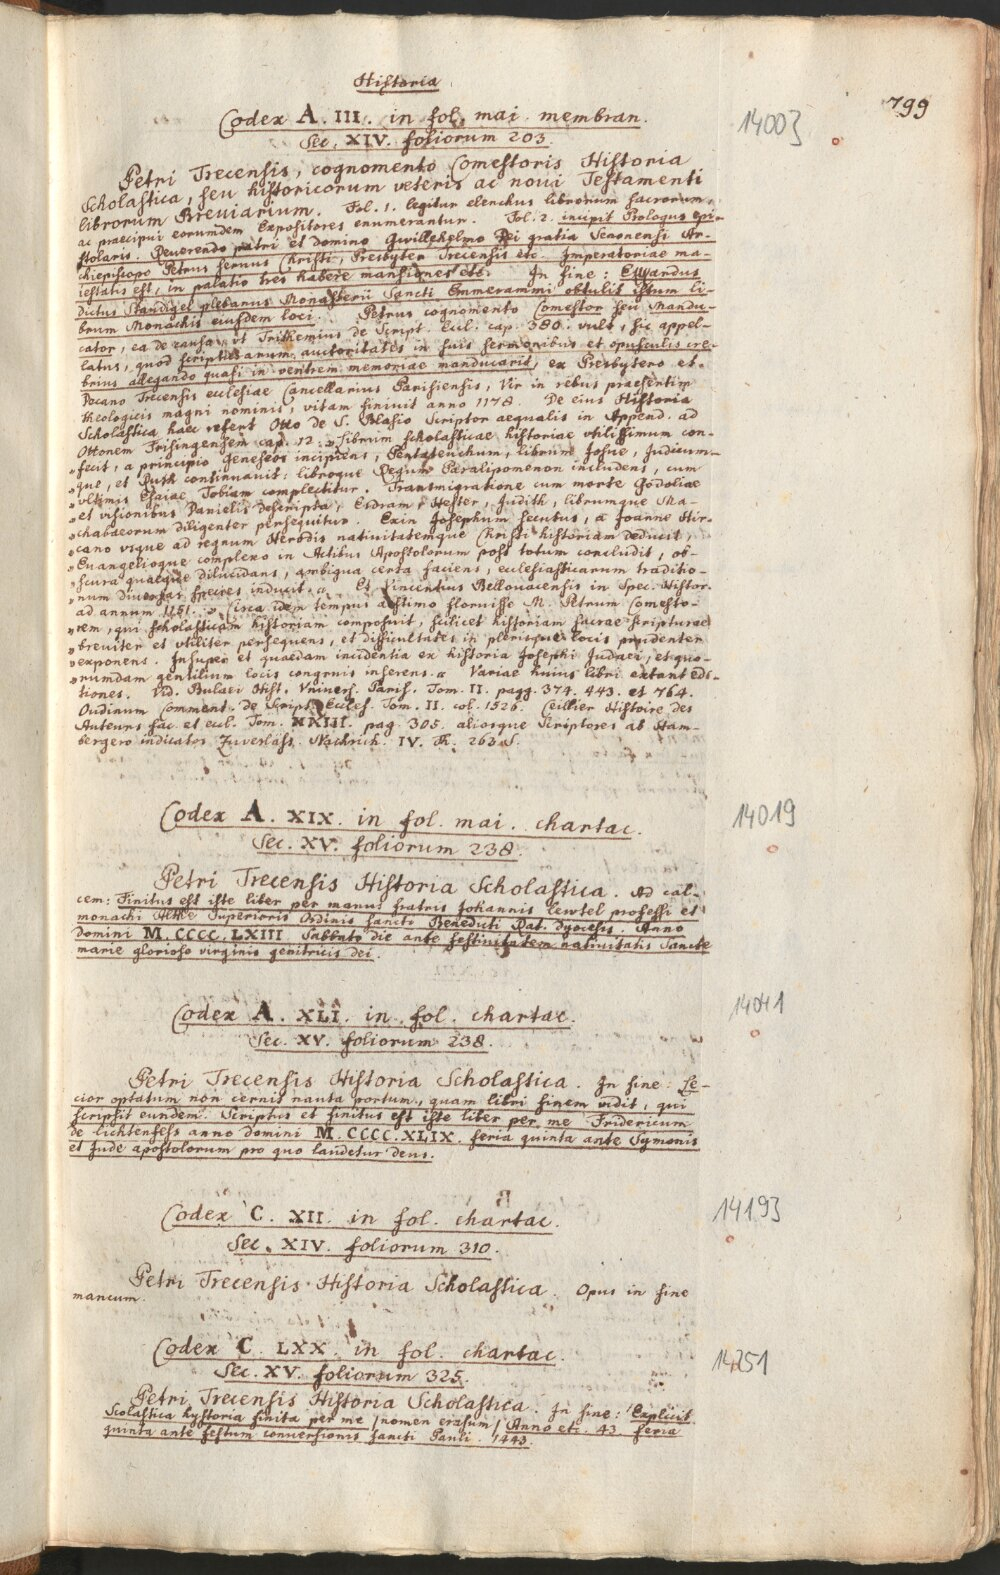 Historia
799
Codex A. III. in fol. mai. membran.
14003
Sec. XIV. foliorum 203.
Petri Trecensis, cognomento Comestoris Historia
Scholastica, seu historicorum veteris ac noui Testamenti
librorum Breuiarium. Fol. 1. legitur elenchus librorum sacrorum,
ac praecipui eorumdem Expositores enumerantur. Fol. 2. incipit Prologus epi-
stolaris. Reuerendo patri et domino Gwillehelmo Dei gratia Senonensi Ar-
chiepiscopo Petrus seruus Christi, Presbyter Trecensis etc. Imperatoriae ma-
iestatis est, in palatio tres habere mansiones etc. In fine:
dictus Standigel plebanus Monasterii Sancti Emmerammi obtulit istum li-
brum Monachis eiusdem loci. Petrus cognomento Comestor seu Mandu-
cator, ea de causa, vt Trithemius de Script. Eccl. cap. 380. vult, sic appel-
latus, quod scripturarum auctoritates in suis sermonibus et opusculis cre-
brius allegando quasi in ventrem memoriae manducarit, ex Presbytero et
Decano Trecensis ecclesiae Cancellarius Parisiensis, Vir in rebus praesertim
theologicis magni nominis, vitam finiuit anno 1178. De eius Historia
Scholastica haec refert Otto de S. Blasio Scriptor aequalis in Append. ad
Ottonem Frisingensem cap. 12: „Librum scholasticae historiae vtilissimum con-
„fecit, a principio Geneseos incipiens, Pentateuchum, librum Josue, Judicum-
„que, et Ruth continuauit: librosque Regum Paralipomenon includens, cum
„vltimis Esaiae Tobiam complectitur. Transmigratione cum morte Godoliae
„et visionibus Danielis descripta, Esdram, Hester, Judith, librumque Ma-
„chabaeorum diligenter persequitur. Exin Josephum secutus, a Joanne Hir-
„cano vsque ad regnum Herodis natiuitatemque Christi historiam deducit,
„Euangelioque complexo in Actibus Apostolorum post totum concludit, ob-
„scura quaeque dilucidans, ambigua certa faciens, ecclesiasticarum traditio-
„num diuersas species inducit.“ Et Vincentius Bellouacensis in Spec. Histor.
ad annum 1151. „Circa idem tempus aestimo floruisse M. Petrum Comesto-
„rem, qui scholasticam historiam composuit, scilicet historiam sacrae scripturae
„breuiter et vtiliter persequens, et difficultates in plerisque locis prudenter
„exponens. Insuper et quaedam incidentia ex historia Josephi Judaei, et quo-
„rumdam gentilium locis congruis inserens.“ Variae huius libri extant edi-
tiones. Vid. Bulaei Hist. Vniuers. Paris. Tom. II. pagg. 374. 443. et 764.
Oudinum Comment. de Script. Eccles. Tom. II. col. 1526. Ceillier Histoire des
Auteurs sac. et eccl. Tom. XXIII. pag. 305. aliosque Scriptores ab Ham-
bergero indicatos Zuverläss. Nachrich. IV. Th. 263. S.
Codex A. XIX. in fol. mai. chartac.
14019
Sec. XV. foliorum 238.
Petri Trecensis Historia Scholastica. Ad cal-
cem: Finitus est iste liber per manus fratris Johannis professi et
monachi Althe Superioris Ordinis sancti Benedicti Pat. dyocesis. Anno
domini M.CCCC.LXIII Sabbato die ante festiuitatem natiuitatis Sancte
marie gloriose virginis genitricis dei.
Codex A. XLI. in fol. chartac.
14041
Sec. XV. foliorum 238.
Petri Trecensis Historia Scholastica. In fine: Le-
cior optatum non cernis nauta portum, quam libri finem vidit, qui
scripsit eundem. Scriptus et finitus est iste liber per me Fridericum
de lichtenfels anno domini M.CCCC.XLIX. feria quinta ante Symonis
et Jude apostolorum pro quo laudetur deus.
Codex C. XII. in fol. chartac.
14193
Sec. XIV. foliorum 310.
Petri Trecensis Historia Scholastica. Opus in fine
mancum.
Codex C. LXX. in fol. chartac.
14251
Sec. XV. foliorum 325.
Petri Trecensis Historia Scholastica. In fine: Explicit
Scolastica hystoria finita per me /nomen erasum/ Anno etc. 43 feria
quinta ante festum conuersionis sancti Pauli. 1443.